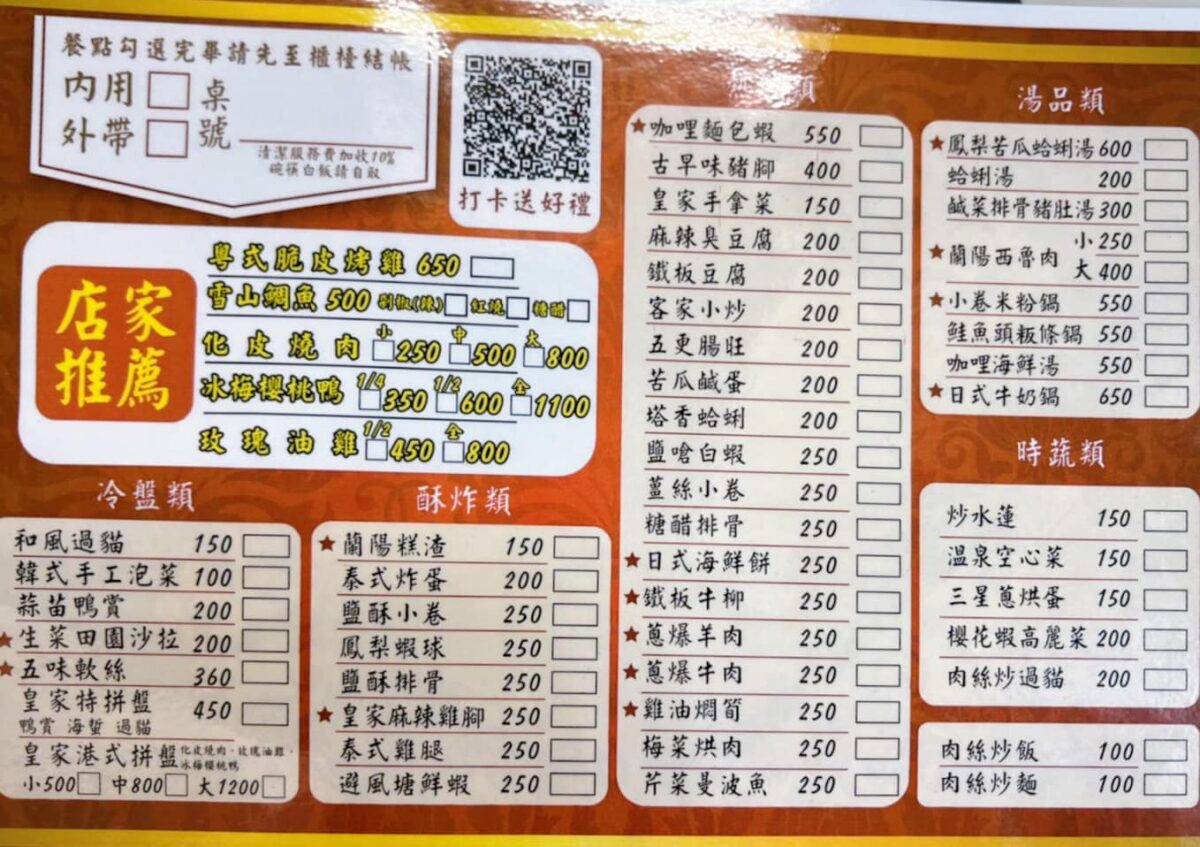 餐點勾選完畢請先至櫃檯結帳
內用 桌
外帶 號
清潔服務費加收10%
碗筷白飯請自取
打卡送好禮
店家
推薦
粵式脆皮烤雞 650
雪山鯛魚 500 剁椒(辣) 紅燒 糖醋
化皮燒肉 小 250 中 500 大 800
冰梅櫻桃鴨 1/4 350 1/2 600 全 1100
玫瑰油雞 1/2 450 全 800
冷盤類
和風過貓 150
韓式手工泡菜 100
蒜苗鴨賞 200
★生菜田園沙拉 200
★五味軟絲 360
皇家特拼盤 450
鴨賞 海蜇 過貓
皇家港式拼盤 化皮燒肉、玫瑰油雞、
冰梅櫻桃鴨
小500 中800 大1200
酥炸類
★蘭陽糕渣 150
泰式炸蛋 200
鹽酥小卷 250
鳳梨蝦球 250
鹽酥排骨 250
★皇家麻辣雞腳 250
泰式雞腿 250
避風塘鮮蝦 250
類
★咖哩麵包蝦 550
古早味豬腳 400
皇家手拿菜 150
麻辣臭豆腐 200
鐵板豆腐 200
客家小炒 200
五更腸旺 200
苦瓜鹹蛋 200
塔香蛤蜊 200
鹽嗆白蝦 250
薑絲小卷 250
糖醋排骨 250
★日式海鮮餅 250
★鐵板牛柳 250
★蔥爆羊肉 250
★蔥爆牛肉 250
★雞油燜筍 250
梅菜烘肉 250
芹菜曼波魚 250
湯品類
★鳳梨苦瓜蛤蜊湯 600
蛤蜊湯 200
鹹菜排骨豬肚湯 300
★蘭陽西魯肉 小 250
大 400
★小卷米粉鍋 550
鮭魚頭粄條鍋 550
咖哩海鮮湯 550
★日式牛奶鍋 650
時蔬類
炒水蓮 150
溫泉空心菜 150
三星蔥烘蛋 150
櫻花蝦高麗菜 200
肉絲炒過貓 200
肉絲炒飯 100
肉絲炒麵 100